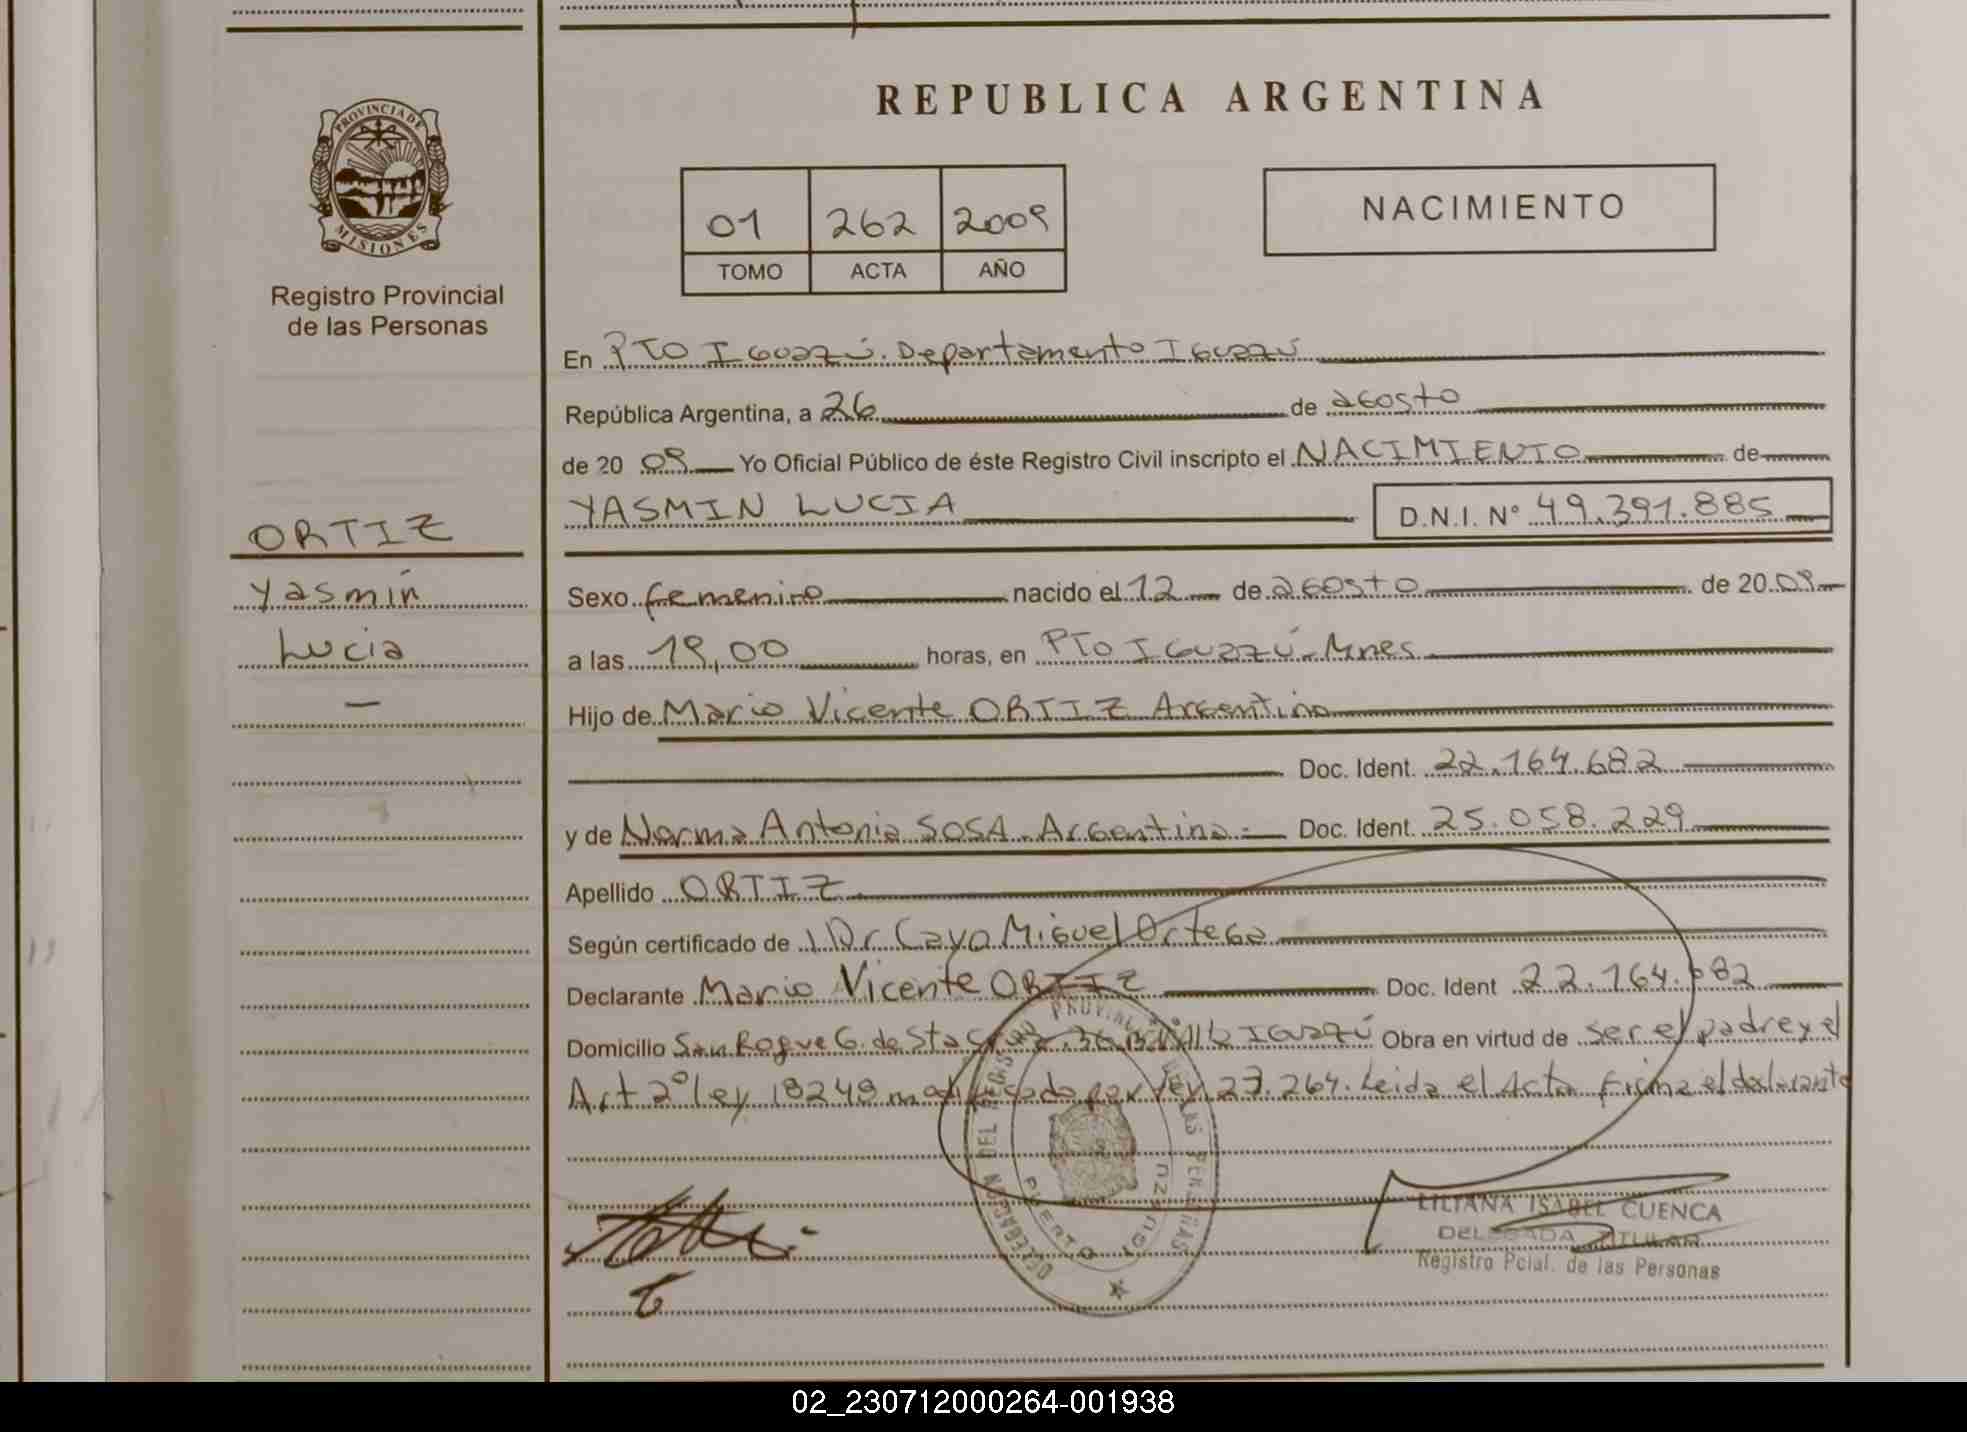 REPUBLICA ARGENTINA
PROVINCIA DE
MISIONES
Registro Provincial
de las Personas
01 262 2009
TOMO ACTA AÑO
NACIMIENTO
En PTO IGUAZÚ. Departamento IGUAZÚ
República Argentina, a 26 de agosto
de 20 09 Yo Oficial Público de éste Registro Civil inscripto el NACIMIENTO de
YASMIN LUCIA D.N.I. N° 49.391.885
ORTIZ
Yasmin
Lucia
Sexo femenino nacido el 12 de agosto de 20 09
a las 19,00 horas, en PTO IGUAZÚ - Mnes
Hijo de Mario Vicente ORTIZ Argentino
Doc. Ident. 22.164.682
y de Norma Antonia SOSA. Argentina.- Doc. Ident. 25.058.229
Apellido ORTIZ
Según certificado de Dr. Cayo Miguel Ortega
Declarante Mario Vicente ORTIZ Doc. Ident 22.164.682
Domicilio San Roque G. de Sta Cruz IGUAZÚ Obra en virtud de ser el padre y el
Art 2° ley 18248 modificado por ley 23.264. Leida el Acta firma el declarante
DELEGACION DEL REGISTRO PROVINCIAL DE LAS PERSONAS
PUERTO IGUAZU
LILIANA ISABEL CUENCA
DELEGADA TITULAR
Registro Pcial. de las Personas
02_230712000264-001938